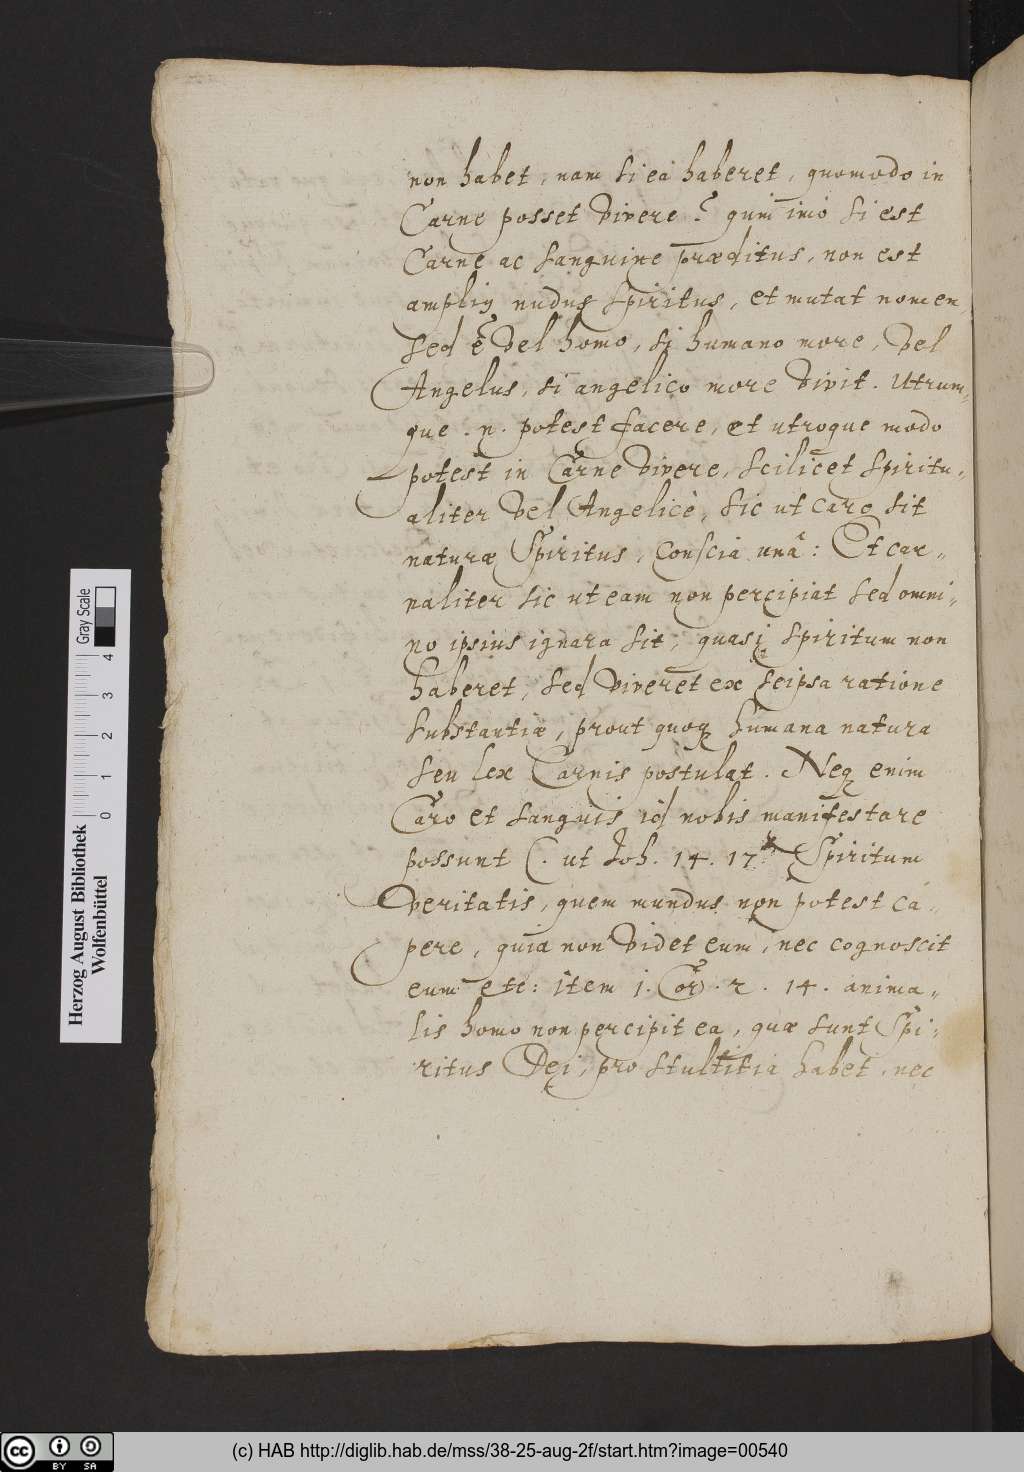 non habet, nam si ea haberet, quomodo in
Carne posset vivere? quin imò si est
Carne ac Sanguine præditus, non est
ampliꝰ nudus Spiritus, et mutat nomen,
Sed ẽ vel homo, si humano more, vel
Angelus, si angelico more vivit. Utrum-
que .n. potest facere, et utroque modo
potest in Carne vivere, scilicet spiritu-
aliter vel Angelicè, sic ut caro sit
naturæ Spiritus, conscia unà: Et car-
naliter sic ut eam non percipiat sed omni-
no ipsius ignara sit, quasi Spiritum non
haberet, sed viveret ex seipsa ratione
Substantiæ, prout quoq humana natura
seu lex Carnis postulat. Neq enim
Caro et Sanguis id nobis manifestare
possunt (. ut Joh. 14. 17. Spiritum
veritatis, quem mundus non potest ca-
pere, quia non videt eum, nec cognoscit
eum etc: item 1. Cor. 2. 14. anima-
lis homo non percipit ea, quæ sunt Spi-
ritus Dei, pro stultitia habet, nec
Herzog August Bibliothek
Wolfenbüttel
0 1 2 3 4
Gray Scale
cc BY SA
(c) HAB http://diglib.hab.de/mss/38-25-aug-2f/start.htm?image=00540